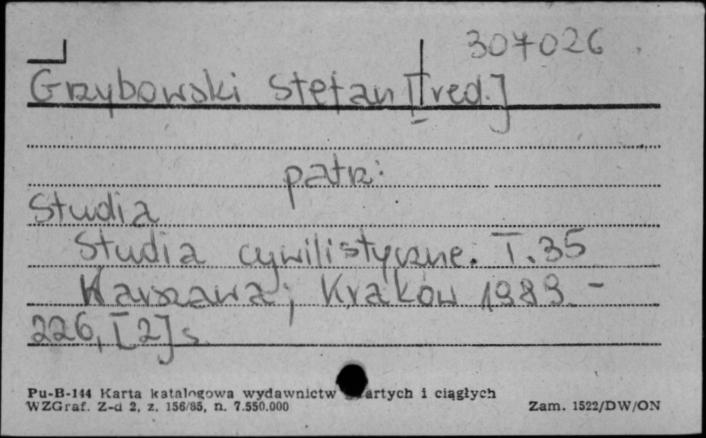 307026
Grzybowski Stefan [red.]
patrz:
Studia
Studia cywilistyczne. T. 35
Warszawa; Kraków 1989. -
226, [2] s.
Pu-B-144 Karta katalogowa wydawnictw artych i ciągłych
WZGraf. Z-d 2, z. 156/85, n. 7.550.000
Zam. 1522/DW/ON